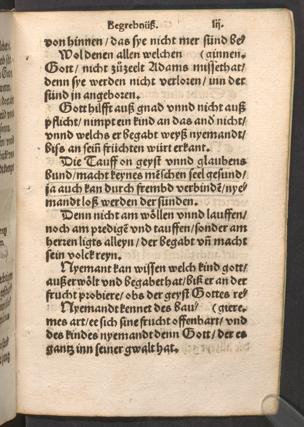 Begrebnüß. lij.
von hinnen/ das sye nicht mer sünd be
Wol denen allen welchen (günnen.
Gott/ nicht zůzelt Adams missethat/
denn sye werden nicht verloren/ inn der
sünd in angeboren.
Gott hilfft auß gnad vnnd nicht auß
pflicht/ nimpt ein kind an das and̕ nicht/
vnnd welchs er begabt weyß nyemandt/
biss an sein̄ früchten würt erkant.
Die Tauff on geyst vnnd glaubens
bund/ macht keynes mēschen seel gesund/
ja auch kan durch frembd verbindē/ nye/
mandt loß werden der sünden.
Denn nicht am wöllen vnnd lauffen/
noch am predigē vnd tauffen/ sonder am
herren ligts alleyn/ der begabt vn̄ macht
sein volck reyn.
Nyemant kan wissen welch kind gott/
außerwölt vnd begabet hat/ biß er an der
frucht probiere/ obs der geyst Gottes re/
Nyemandt kennet des bau/ (giere.
mes art/ ee sich sine frucht offenbart/ vnd
des kindes nyemandt denn Gott/ der es
gantz inn seiner gwalt hat.